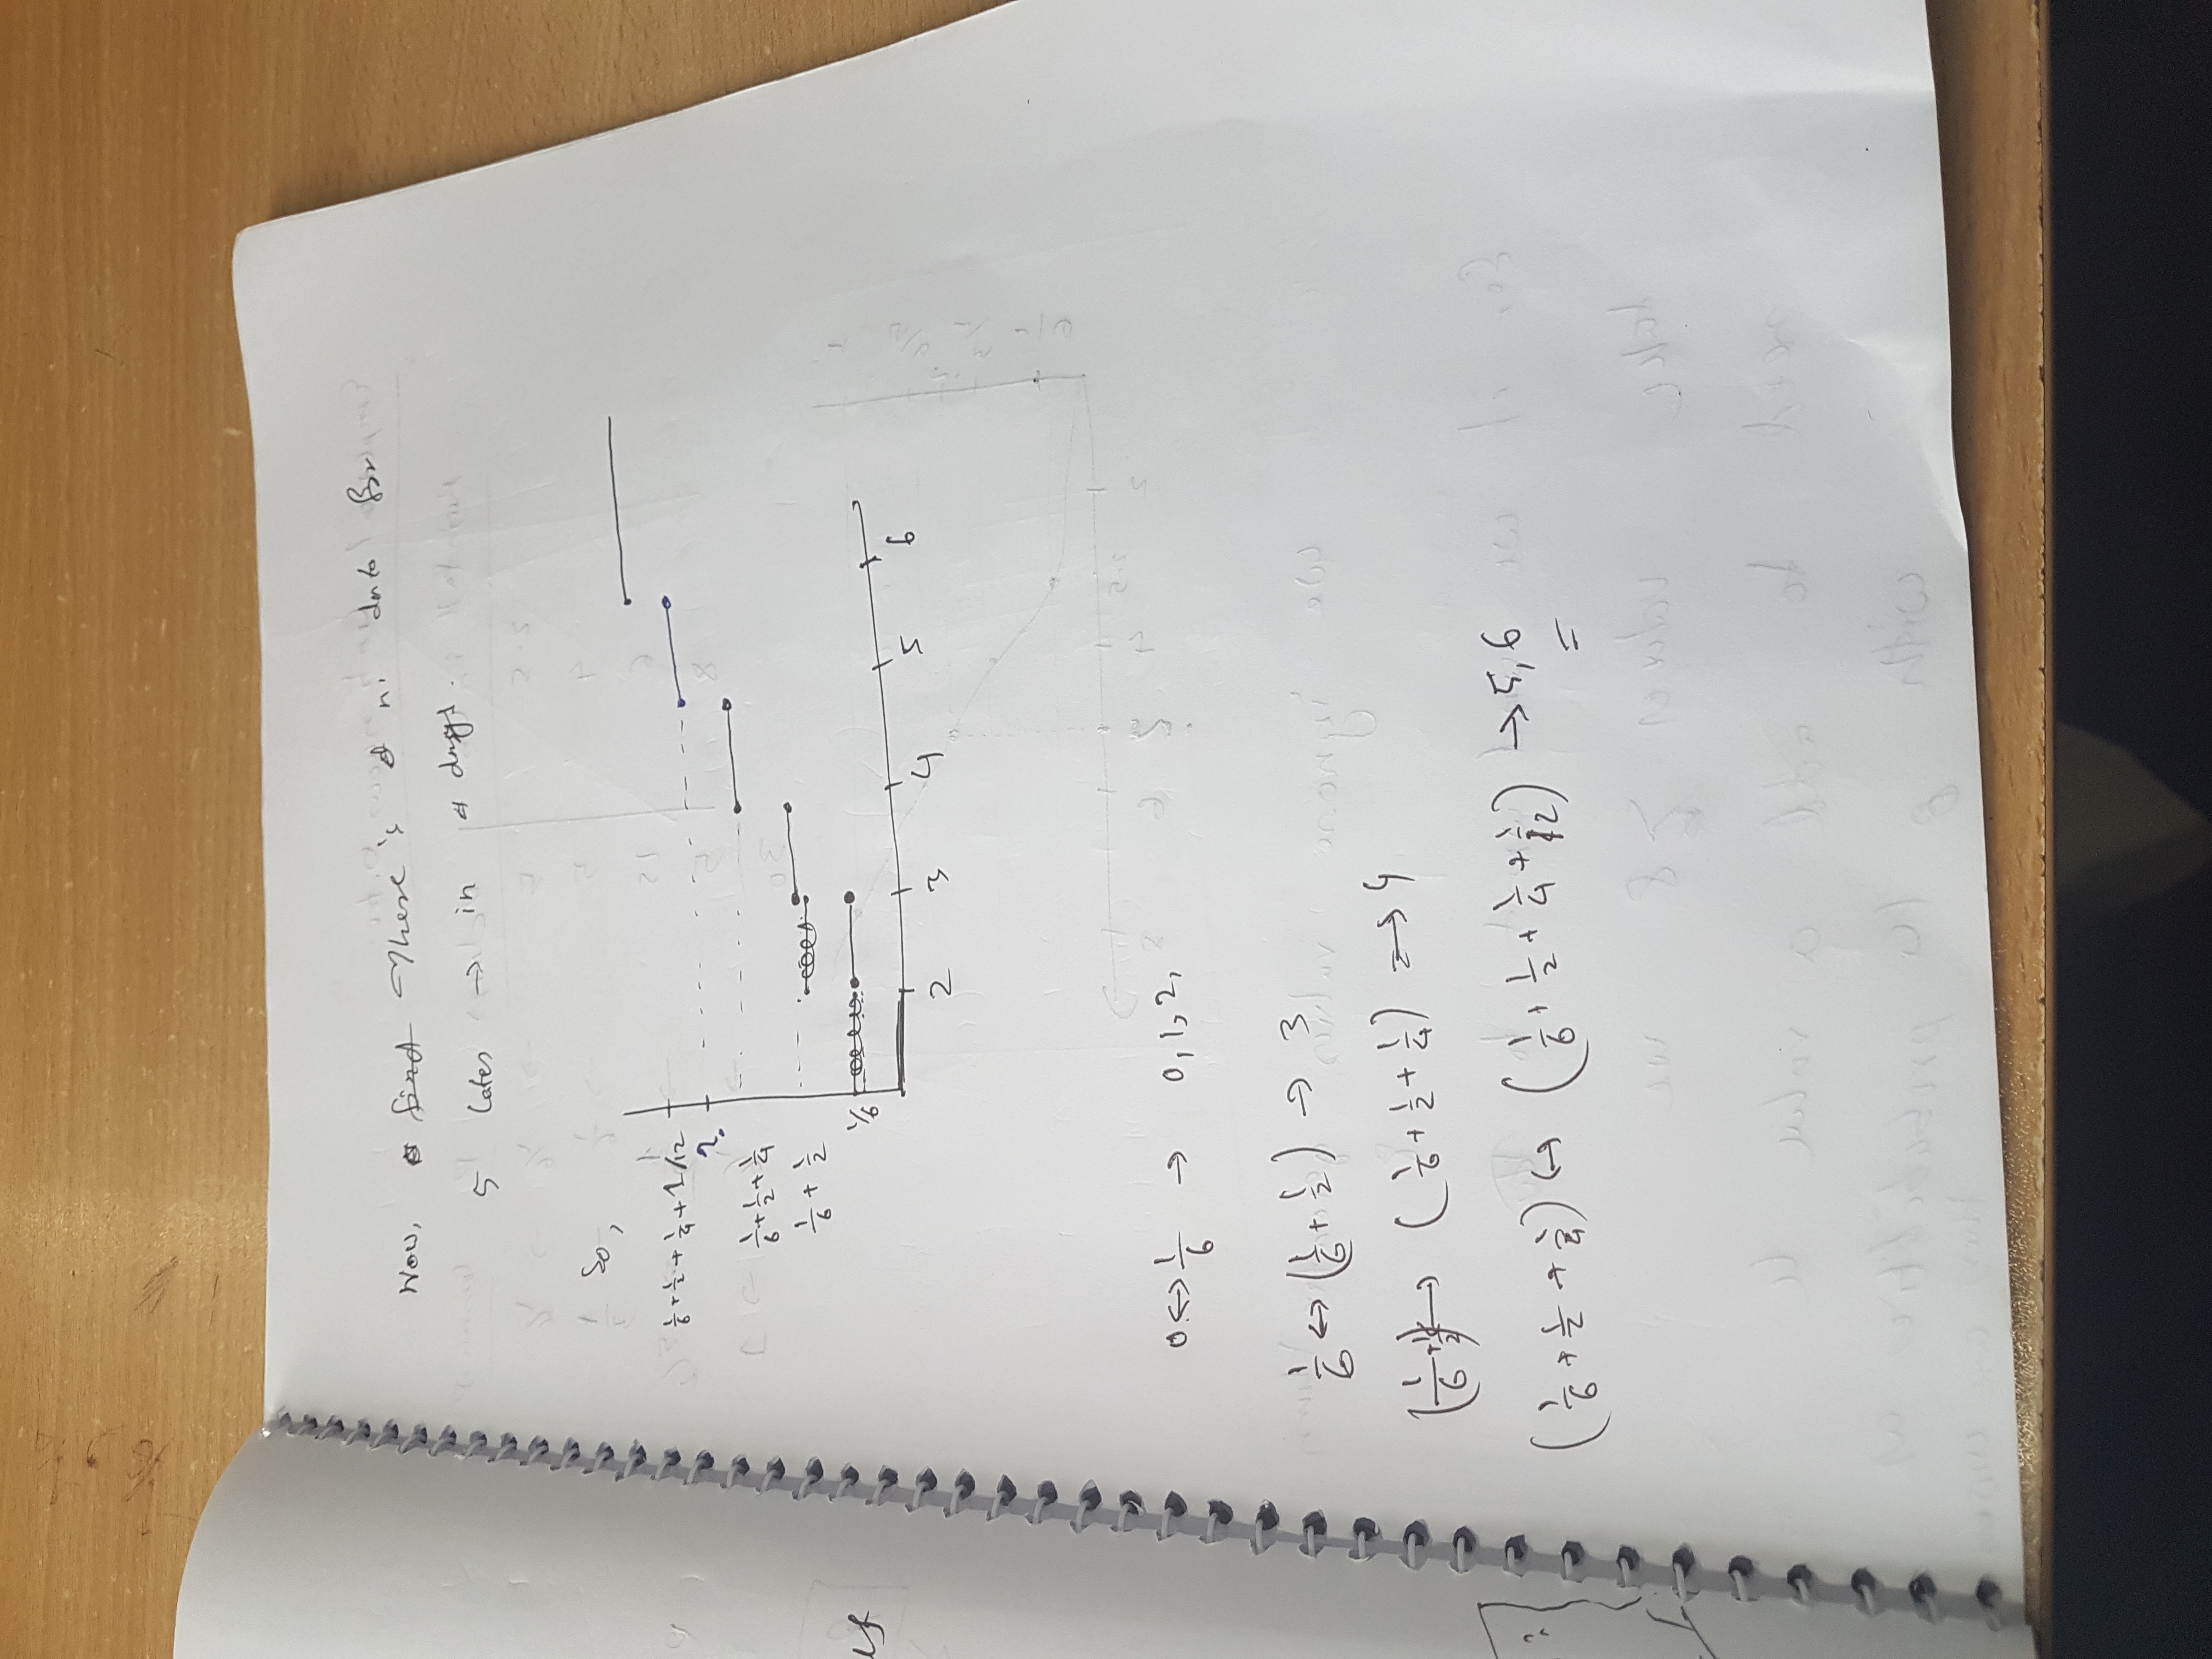 Now, There's no data for
5 lates → in 4 days.
So,
1/6 + 1/2 + 1/4 + 1/12
?
1/6 + 1/2 + 1/4
1/6 + 1/2
1/6
2 3 4 5 6
0 ↔ 1/6 → 0, 1, 2,
1/6 ↔ (1/6 + 1/2) → 3
(1/6 + 1/2) ↔ (1/6 + 1/2 + 1/4) → 4
(1/6 + 1/2 + 1/4) ↔ (1/6 + 1/2 + 1/4 + 1/12) → 5, 6